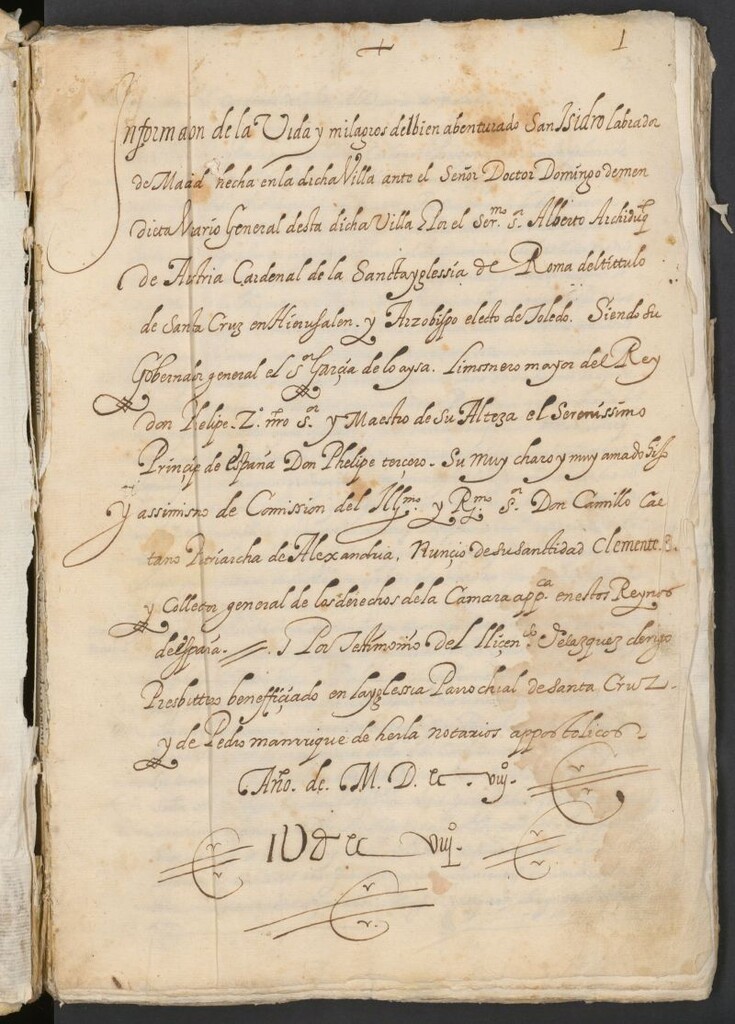 1
Informaon de la Vida y milagros del bien abenturado San Isidro labrador
de Madd hecha en la dicha Villa ante el Señor Doctor Domingo de men
dieta Vicario General desta dicha Villa Por el Ser.mo s.r Alberto Archiduq
de Austria Cardenal de la Sancta yglessia de Roma del tittulo
de Santa Cruz en Hierusalen. y Arzobispo electo de Toledo. Siendo su
Gobernador general el s.or Garçia de loaysa. Limosnero mayor del Rey
don Felipe. 2.º nro s.or y Maestro de su Alteza el Serenissimo
Principe de españa Don Phelipe tercero. Su muy charo y muy amado hijo
Y assimismo de Comission del Ill.mo y R.mo s.or Don Camillo Cae
tano Patriarcha de Alexandria, Nunçio de su santtidad Clemente. 8.
y Collector general de los derechos de la Camara app.ca en estos Reynos
de españa. Por Testimonio del liçen.do Velazquez clerigo
Presbittero benefiçiado en la yglessia Parrochial de Santa Cruz.
y de Pedro manrrique de herla notarios appostolicos
Año. de. M. D. xc. viijº.
IU d xc viijº.